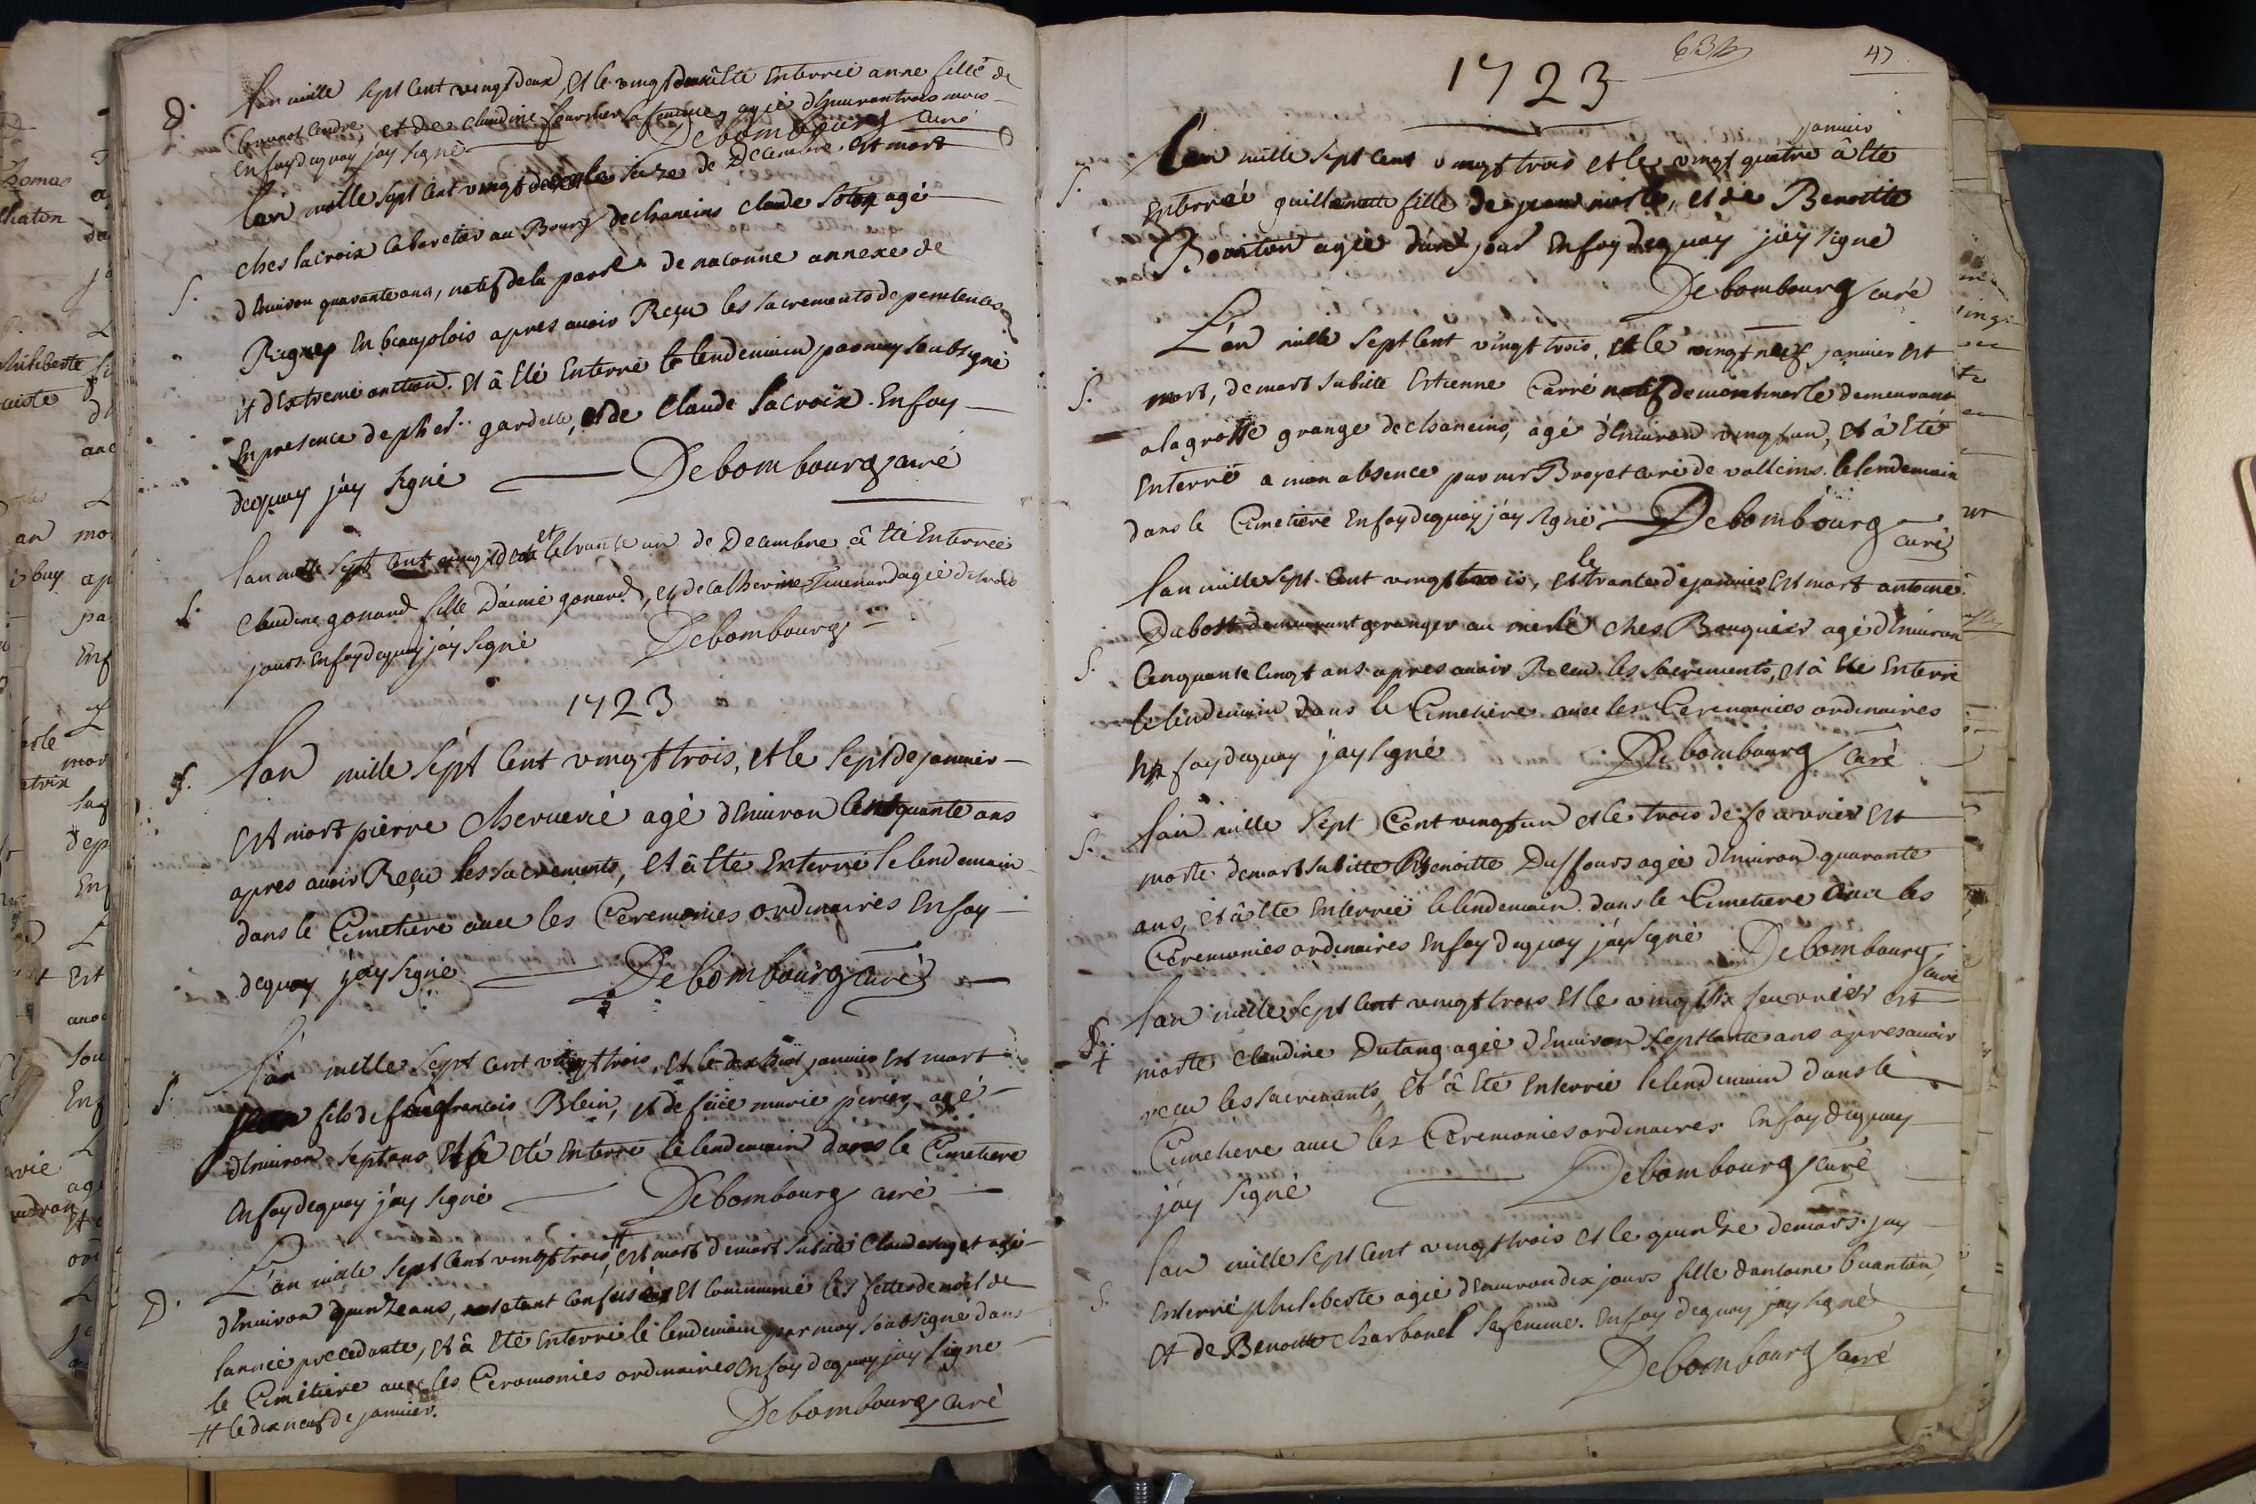 D. Lan mille sept cent vingt deux, et le vingt deux à eté enterreé anne fille de
et de claudine fournier sa femme, ageé d'environ trois mois
En foy de quoy j'ay signé Debombourg curé
Lan mille sept cent vingt deux et le seize de Decembre est mort
ches lacroix cabaretier au Bourg de chaneins claude agé
S. d'Environ quarante ans, natif de la parss de naconne annexe de
Rigney En beaujolois apres avoir Reçu les sacrements de penitence
et d'Extreme onction. et à eté Enterré le lendemain par moy soubsigné
En presence de phet.. gardette, et de Claude Lacroix. En foy
de quoy j'ay signé Debombourg curé
S. Lan mille sept cent vingt deux et le trante un de Decembre à eté Enterreé
Claudine gonard fille d'aimé gonard, et de Catherine ageé de trois
jours. En foy de quoy j'ay signé Debombourg
1723
S. Lan mille sept cent vingt trois, et le sept de janvier
est mort pierre Cheruerié agé d'Environ Cinquante ans
apres avoir Reçu les sacrements, et à eté Enterré le lendemain
dans le Cimetiere avec les Ceremonies ordinaires En foy
de quoy j'ay signé Debombourg curé
S. L'an mille sept cent vingt trois, et le dix huit janvier est mort
jean fils de feu francois Blein, et de feüe marie périer, agé
d'Environ sept ans et à eté enterré le lendemain dans le Cimetiere
En foy de quoy j'ay signé Debombourg curé
D. L'an mille sept cent vingt trois, # est mort de mort subite Claude agé
d'Environ quinze ans, s'etant confessé et communié les fettes de noël de
l'anneé precedante, et à eté enterré le lendemain par moy soubsigné dans
le Cimetiere avec les Ceremonies ordinaires En foy de quoy jay signe
# le dix neuf de janvier. Debombourg curé
632 47
1723
janvier
S. L'an mille sept cent vingt trois et le vingt quatre à eté
Enterreé guillemette fille de jean merle, et de Benoitte
Bointon ageé d'un jour En foy de quoy j'ay signé
Debombourg curé
L'an mille sept cent vingt trois, et le vingt neuf janvier est
S. mort, de mort subitte Estienne Carré natif de montmerle demeurant
a la grosse grange de chaneins, agé d'Environ vingt un, et à eté
Enterré a mon absence par mr Broyet curé de valleins. le lendemain
dans le Cimetiere En foy de quoy j'ay signé Debombourg
curé
Lan mille sept cent vingt trois, et le trante de janvier est mort antoine
Dubost demeurant granger au merle ches Bouquier agé d'Environ
S. Cinquante cinq ans apres avoir Recu les sacrements, et à eté Enterré
le lendemain dans le Cimetiere avec les Ceremonies ordinaires
En foy de quoy j'ay signé Debombourg curé
S. Lan mille sept Cent vingt un et le trois de fevrier est
morte de mort subitte Benoitte Duffour ageé d'Environ quarante
ans, et à eté Enterreé le lendemain dans le Cimetiere avec les
Ceremonies ordinaires En foy de quoy j'ay signé Debombourg
curé
S. Lan mille sept cent vingt trois et le vingt six feuvrier est
morte claudine Dutang ageé d'Environ septtante ans apres avoir
reçu les sacrements, et à eté Enterreé le lendemain dans le
Cimetiere avec les Ceremonies ordinaires En foy de quoy
j'ay signé Debombourg curé
Lan mille sept cent vingt trois et le quinze de mars jay
S. Enterré philiberte ageé d'Environ dix jours fille d'antoine buanton
et de Benoitte charbonel sa femme. En foy de quoy jay signé
Debombourg curé